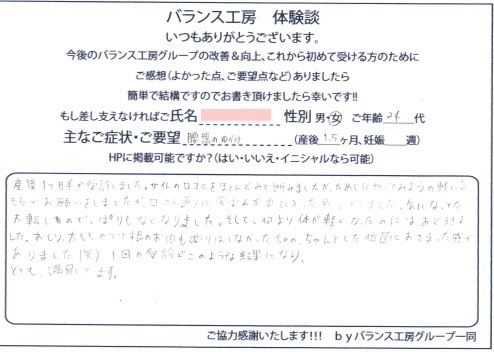 バランス工房 体験談
いつもありがとうございます。
今後のバランス工房グループの改善&向上、これから初めて受ける方のために
ご感想(よかった点、ご要望点など)ありましたら
簡単で結構ですのでお書き頂けましたら幸いです!!
もし差し支えなければご氏名 性別 男・女 ご年齢 24 代
主なご症状・ご要望 (産後 1.5ヶ月、妊娠 週)
HPに掲載可能ですか?(はい・いいえ・イニシャルなら可能)
産後1ヶ月半で受診しました。サイトの口コミをほとんどみて悩みましたが、ためしにやってみようの軽い気
もちでお願いしましたが、口コミ通りに
なくなりました。そして、何より体が軽くなったのにはおどろきま
した。おしり、太もものつけ根のお肉も、ちゃんとした位置におさまった感が
ありました(笑) 1回の受診でこのような結果になり、
とても、満足してます。
ご協力感謝いたします!!! byバランス工房グループ一同